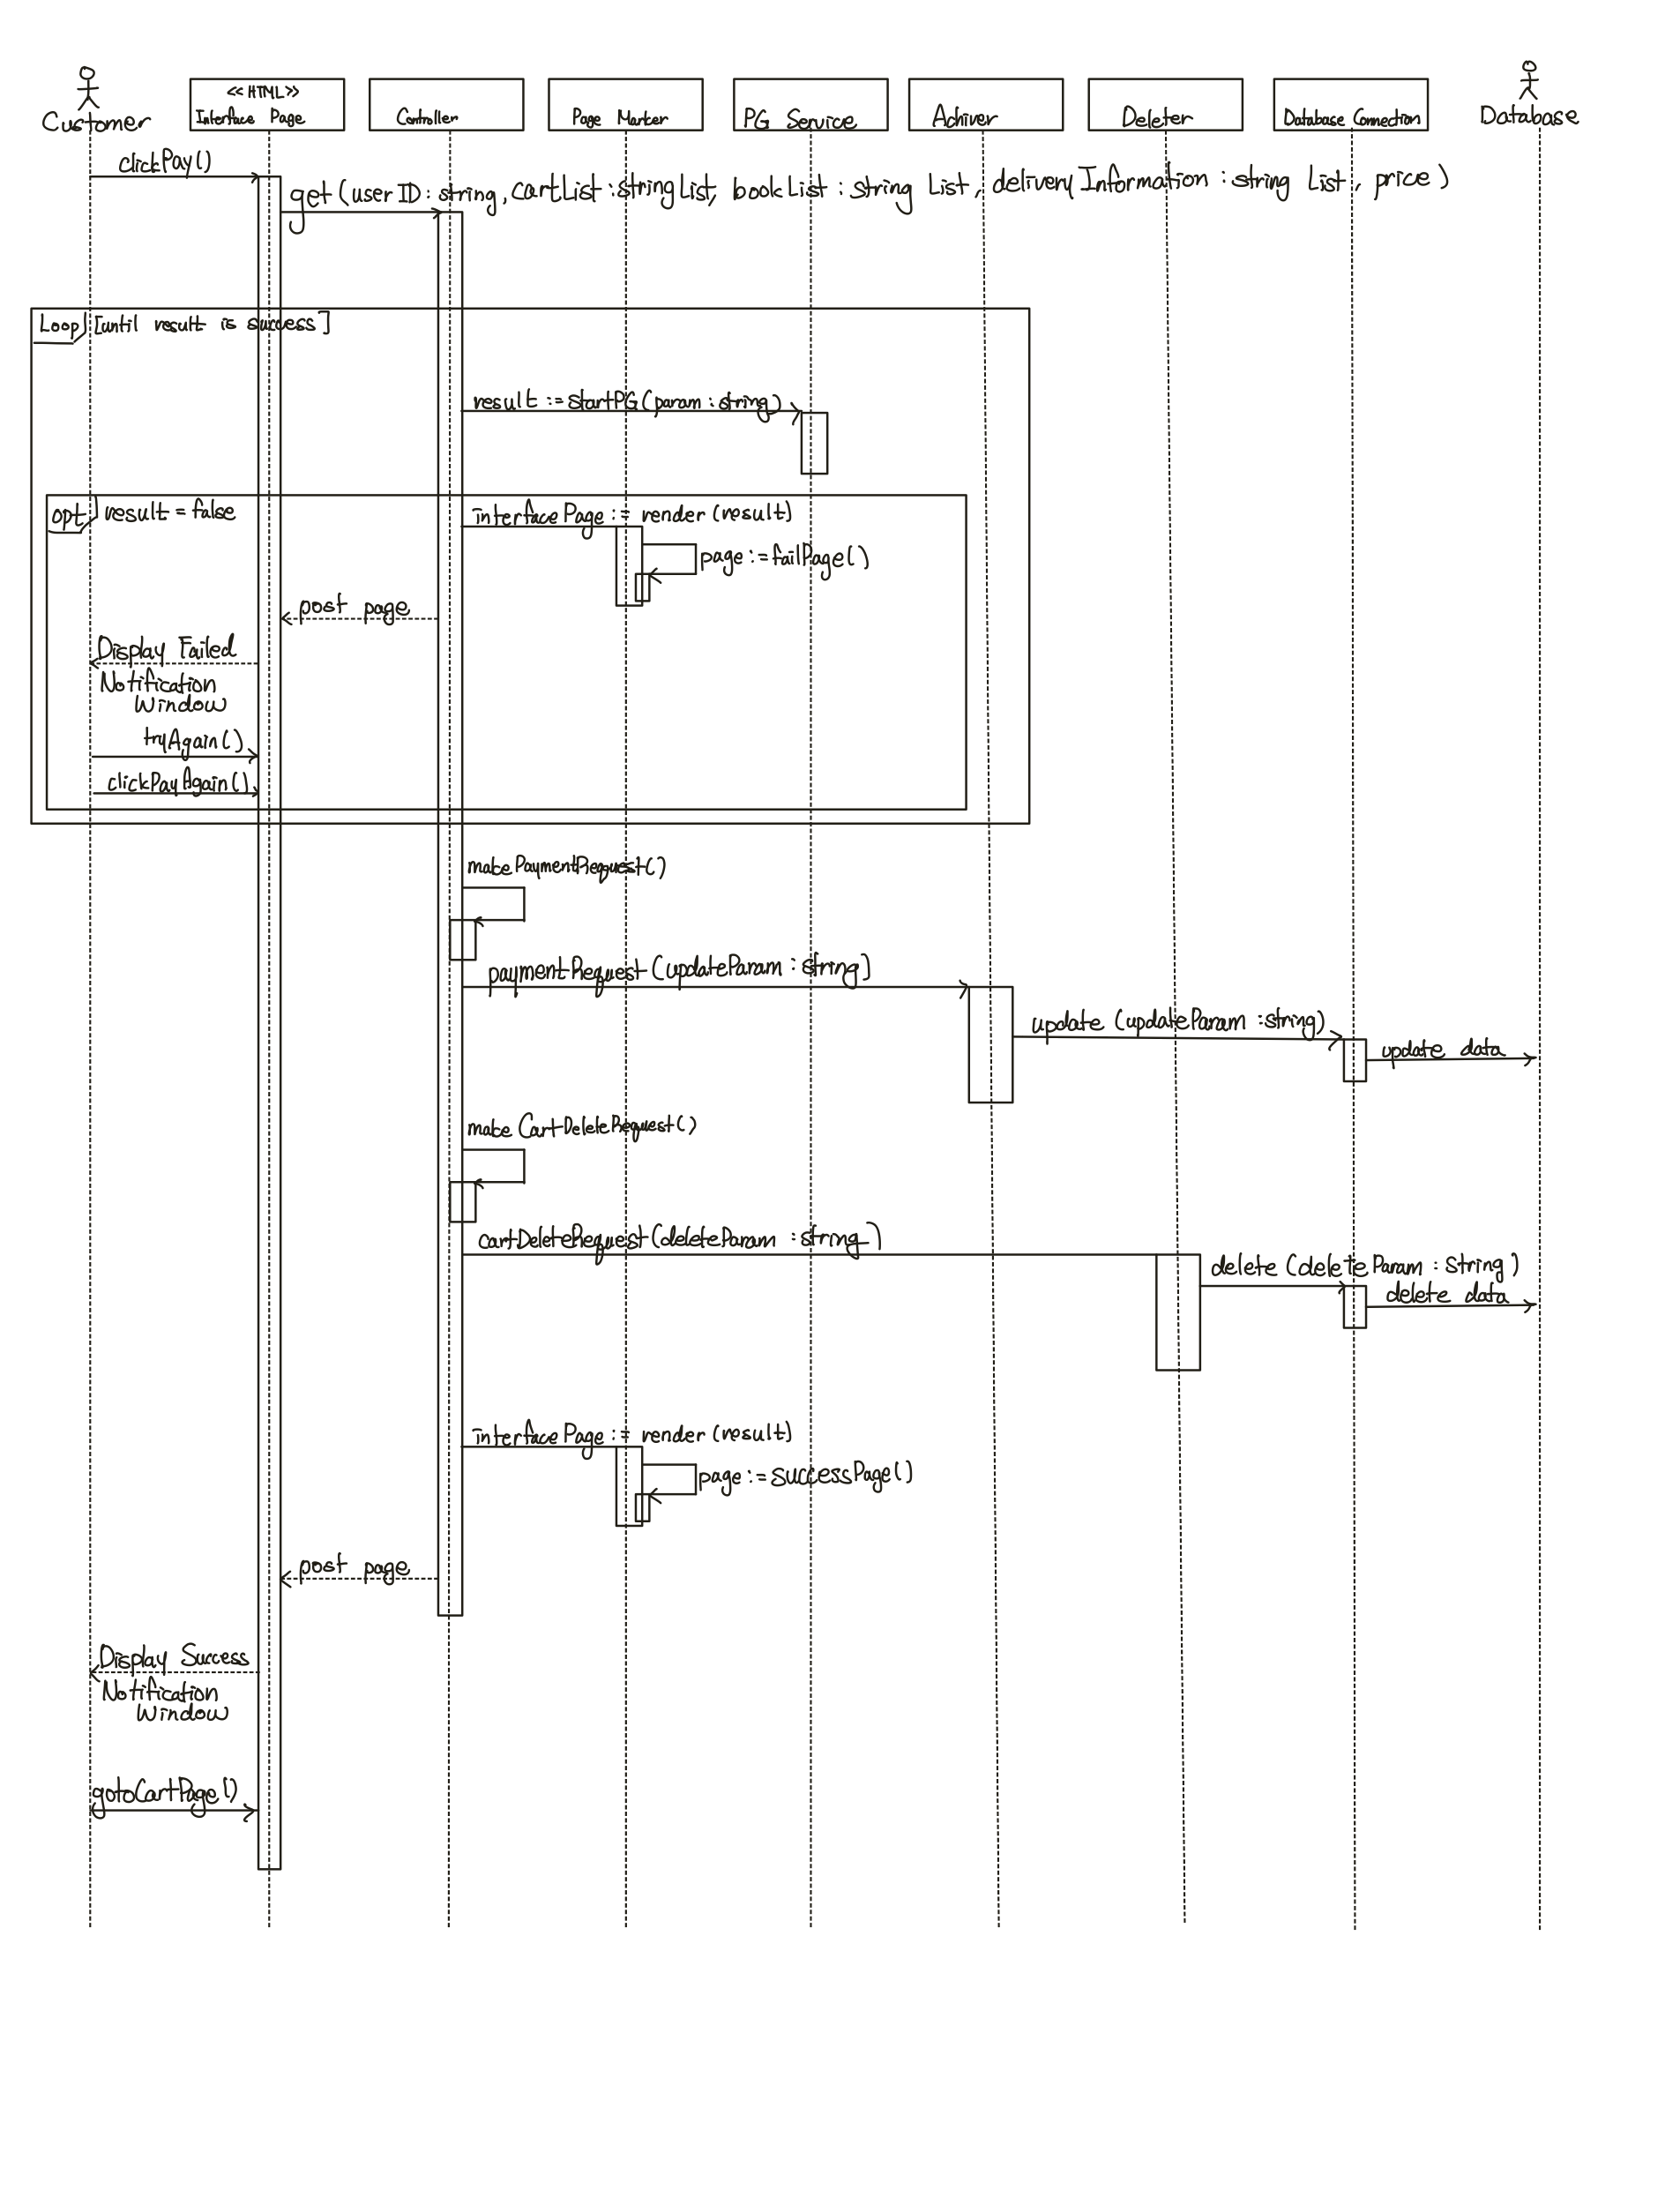 Customer
<< HTML >>
Interface Page
Controller
Page Marker
PG Service
Achiver
Deleter
Database Connection
Database
clickPay()
get (userID : string, CartList : string List, bookList : string List, deliveryInformation : string List, price)
Loop [until result is success]
result := startPG(param : string)
opt result = false
interfacePage := render (result)
page := failPage()
post page
Display Failed
Notification
Window
tryAgain()
clickPayAgain()
makePaymentRequest()
paymentRequest (updateParam : string)
update (updateParam : string)
update data
make CartDeleteRequest()
cartDeleteRequest(deleteParam : string)
delete (deleteParam : string)
delete data
interfacePage := render (result)
page := successPage()
post page
Display Success
Notification
Window
gotoCartPage()